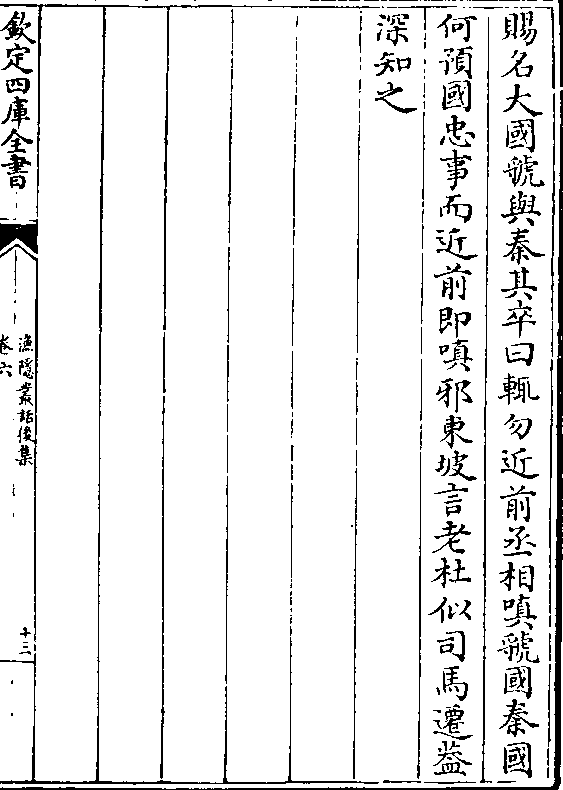 賜名大國虢與秦其卒曰輒勿近前丞相嗔虢國秦國
何預國忠事而近前即嗔邪東坡言老杜似司馬遷葢
深知之
欽定四庫全書
漁隱叢話後集
卷六
十三